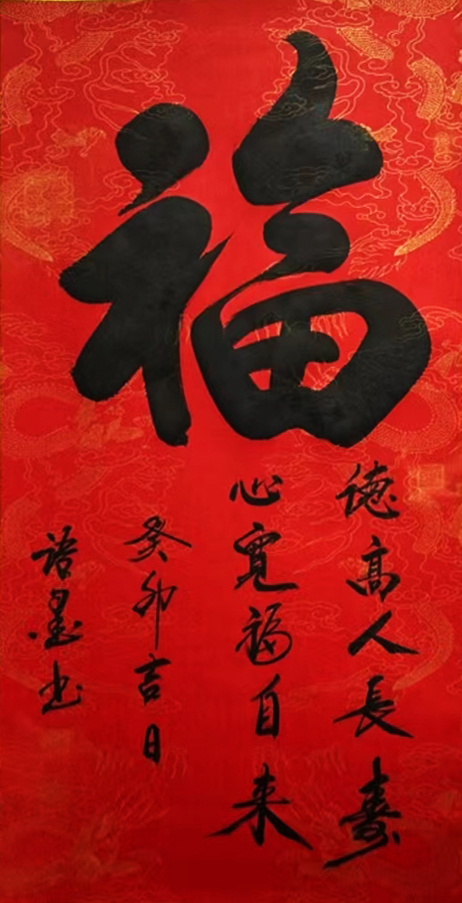 福
德高人長壽
心寬福自来
癸卯吉日
语墨书